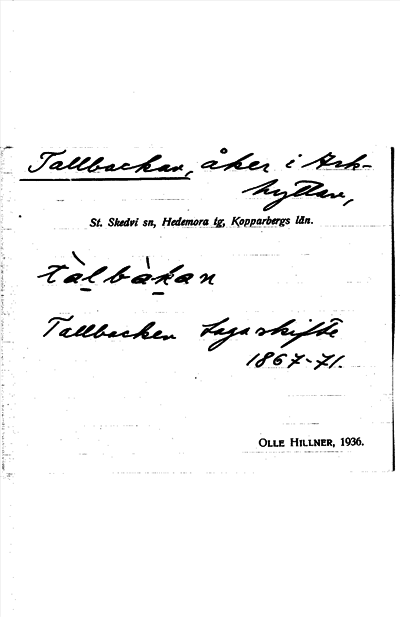 Tallbackan, åker i Ark-
hyttan,
St. Skedvi sn, Hedemora tg, Kopparbergs län.
tàlbàkan
Tallbacken Lagaskifte
1867-71.
OLLE HILLNER, 1936.